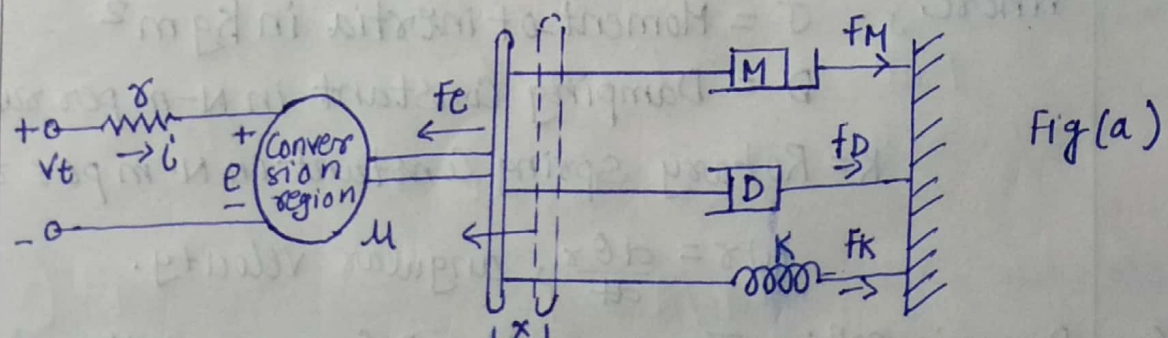 r
+
→ i
Vt
-
+
e
-
Conver
sion
region
Fe
u
x
M
FM
D
fD
K
FK
Fig (a)